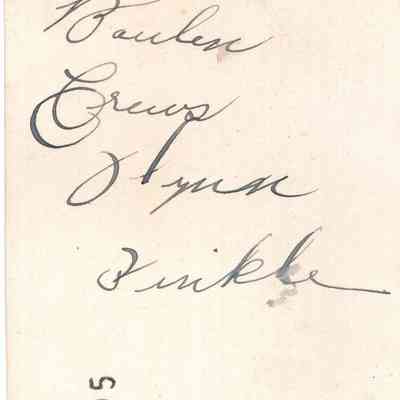 Baulen
Crews
Lynn
Finkle
05